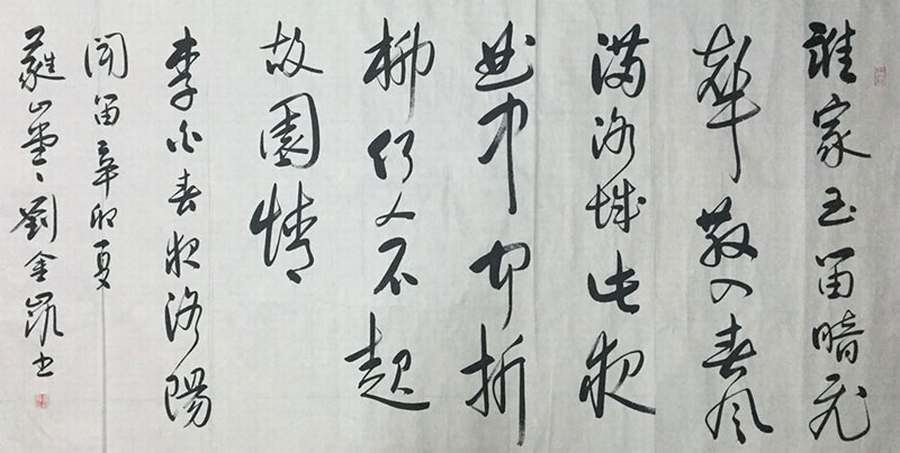 誰家玉笛暗飛
聲散入春風
滿洛城此夜
曲中聞折
柳何人不起
故園情
李白春夜洛陽
聞笛辛卯夏
山劉金書